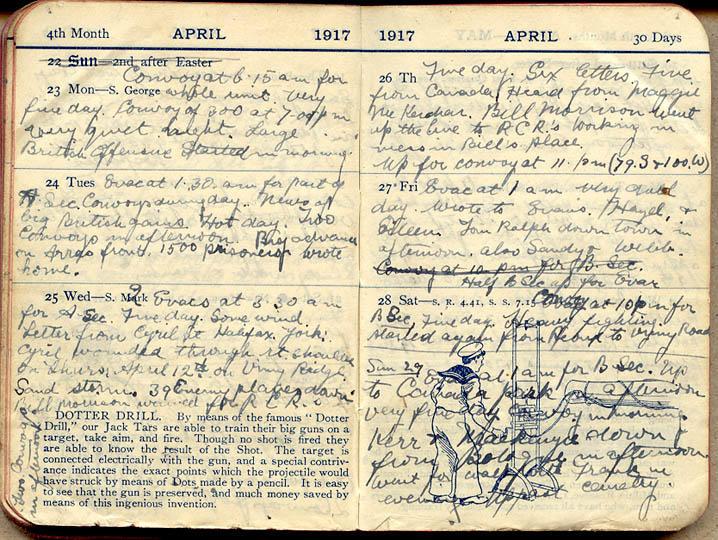 4th Month APRIL 1917
22 Sun—2nd after Easter
Convoy at 6.15 am for
23 Mon—S. George whole unit. Very
fine day. Convoy of 300 at 7.0 pm
very quiet Large
British Offensive Started in morning.
24 Tues Evac at 1.30 am for part of
A Sec. Convoys during day. News of
big British gains. Hot day. Two
Convoys in afternoon. Big advance
on Arras front. 1500 prisoners wrote
home.
25 Wed—S. Mark 2 Evacs at 3.30 am
for A Sec. Fine day. Some wind
Letter from Cyril at Halifax. York:
Cyril wounded through rt shoulder
on Thurs. April 12th on Vimy Ridge
Sand storms. 39 Enemy planes down
Bill Morrison warned for R.C.R.s
DOTTER DRILL. By means of the famous “Dotter
Drill,” our Jack Tars are able to train their big guns on a
target, take aim, and fire. Though no shot is fired they
are able to know the result of the Shot. The target is
connected electrically with the gun, and a special contriv-
ance indicates the exact points which the projectile would
have struck by means of Dots made by a pencil. It is easy
to see that the gun is preserved, and much money saved by
means of this ingenious invention.
Two Convoys
in afternoon
1917 APRIL 30 Days
26 Th Fine day. Six letters. Five
from Canada. Heard from Maggie
Bill Morrison went
up the line to R.C.R.s Working in
mess in Bill's place.
Up for convoy at 11. pm (79.S & 100.W)
27 Fri Evac at 1 am very dull
day. Wrote to Evans, Hazel, &
Eileen. Tom Ralph down town in
afternoon. also Sandy & Welch.
Convoy at 10. pm for B Sec.
Half B Sec up for Evac
28 Sat—S. R. 4.41, S. S. 7.15 Convoy at 10 pm for
B Sec. Fine day. Heavy fighting
started again from to Vimy Road
Sun 29 at 1 am for B Sec. Up
to Canada park in afternoon
very fine day Convoy in morning
Kerr & MacKenzie down
from in afternoon
went for walk with Frank in
evening cemetery